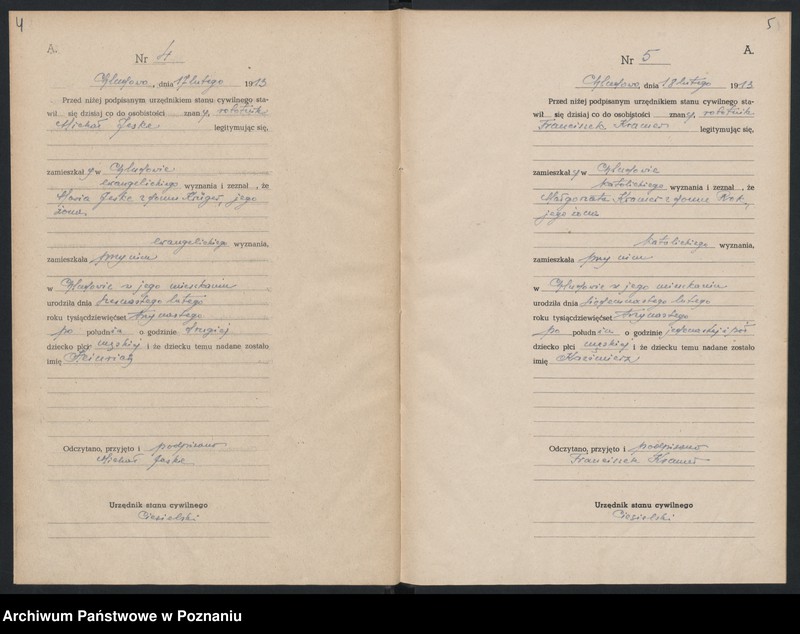 4
A.
Nr 4
Chludowo, dnia 17 lutego 1913
Przed niżej podpisanym urzędnikiem stanu cywilnego sta-
wił się dzisiaj co do osobistości znany, robotnik
Michał Jeske legitymując się,
zamieszkały w Chludowie
ewangelickiego wyznania i zeznał, że
Maria Jeske z domu Krüger, jego
żona
ewangelickiego wyznania,
zamieszkała przy nim
w Chludowie w jego mieszkaniu
urodziła dnia lutego
roku tysiącdziewięćset trzynastego
po południa o godzinie drugiej
dziecko płci męskiej i że dziecku temu nadane zostało
imię
Odczytano, przyjęto i podpisano
Michał Jeske
Urzędnik stanu cywilnego
Ciesielski
5
A.
Nr 5
Chludowo, dnia 18 lutego 1913
Przed niżej podpisanym urzędnikiem stanu cywilnego sta-
wił się dzisiaj co do osobistości znany, robotnik
Franciszek Kramer legitymując się,
zamieszkały w Chludowie
katolickiego wyznania i zeznał, że
Małgorzata Kramer z domu
jego żona
katolickiego wyznania,
zamieszkała przy nim
w Chludowie w jego mieszkaniu
urodziła dnia siedemnastego lutego
roku tysiącdziewięćset trzynastego
po południu o godzinie jedenastej i pół
dziecko płci męskiej i że dziecku temu nadane zostało
imię Kazimierz
Odczytano, przyjęto i podpisano
Franciszek Kramer
Urzędnik stanu cywilnego
Ciesielski
Archiwum Państwowe w Poznaniu